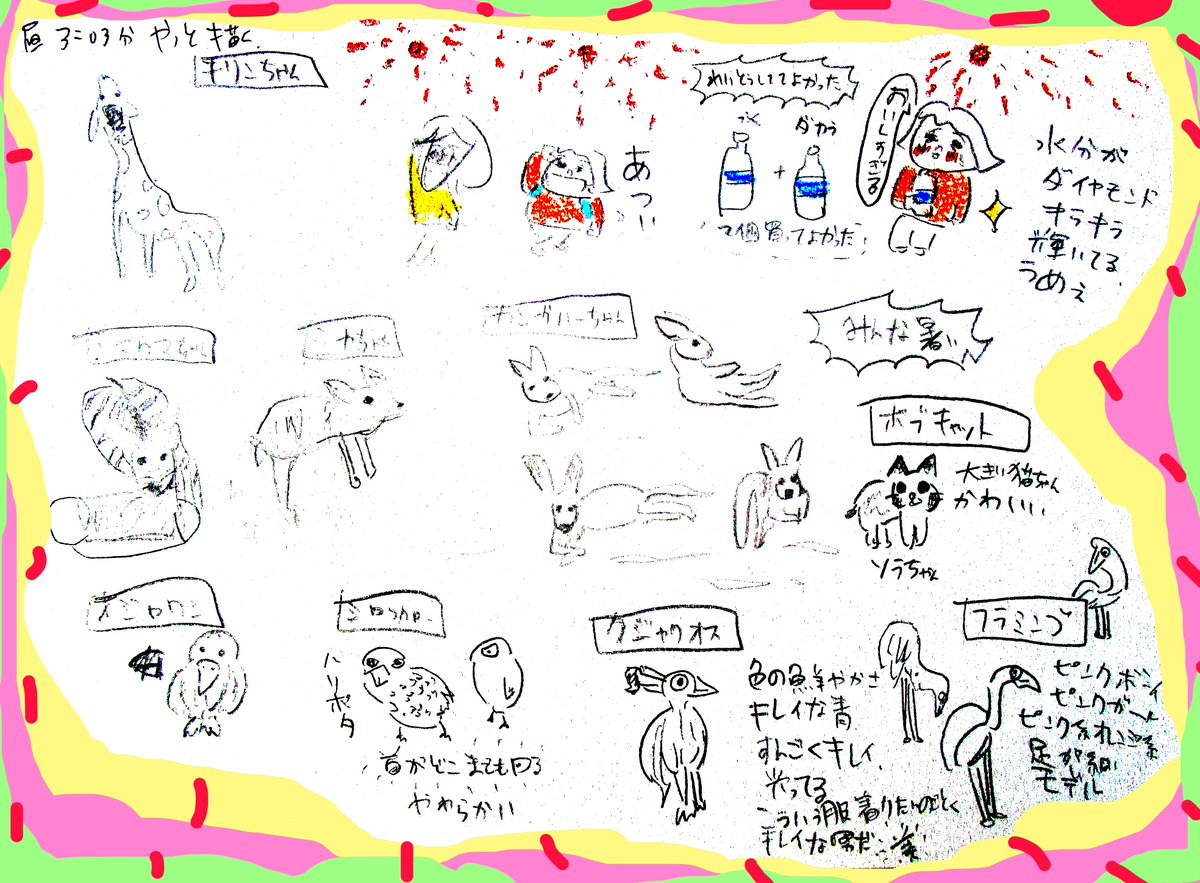 昼 3:03分 やっと描く
キリンちゃん
あつい
れいとうしててよかった
水
ダカラ
+
2個買ってよかった!
おいしすぎる
水分が
ダイヤモンド
キラキラ
輝いてる
うめぇ
カンガルーちゃん
みんな暑い
ボブキャット
大きい猫ちゃん
かわいい
ソラちゃん
オジロワシ
シロフクロー
ハリポタ
首がどこまでも回る
やわらかい
クジャクオス
色の鮮やかさ
キレイな青
すんごくキレイ
光ってる
こういう服着りたい
キレイな
フラミンゴ
ピンク
ピンクが
ピンク
足が細
モデル